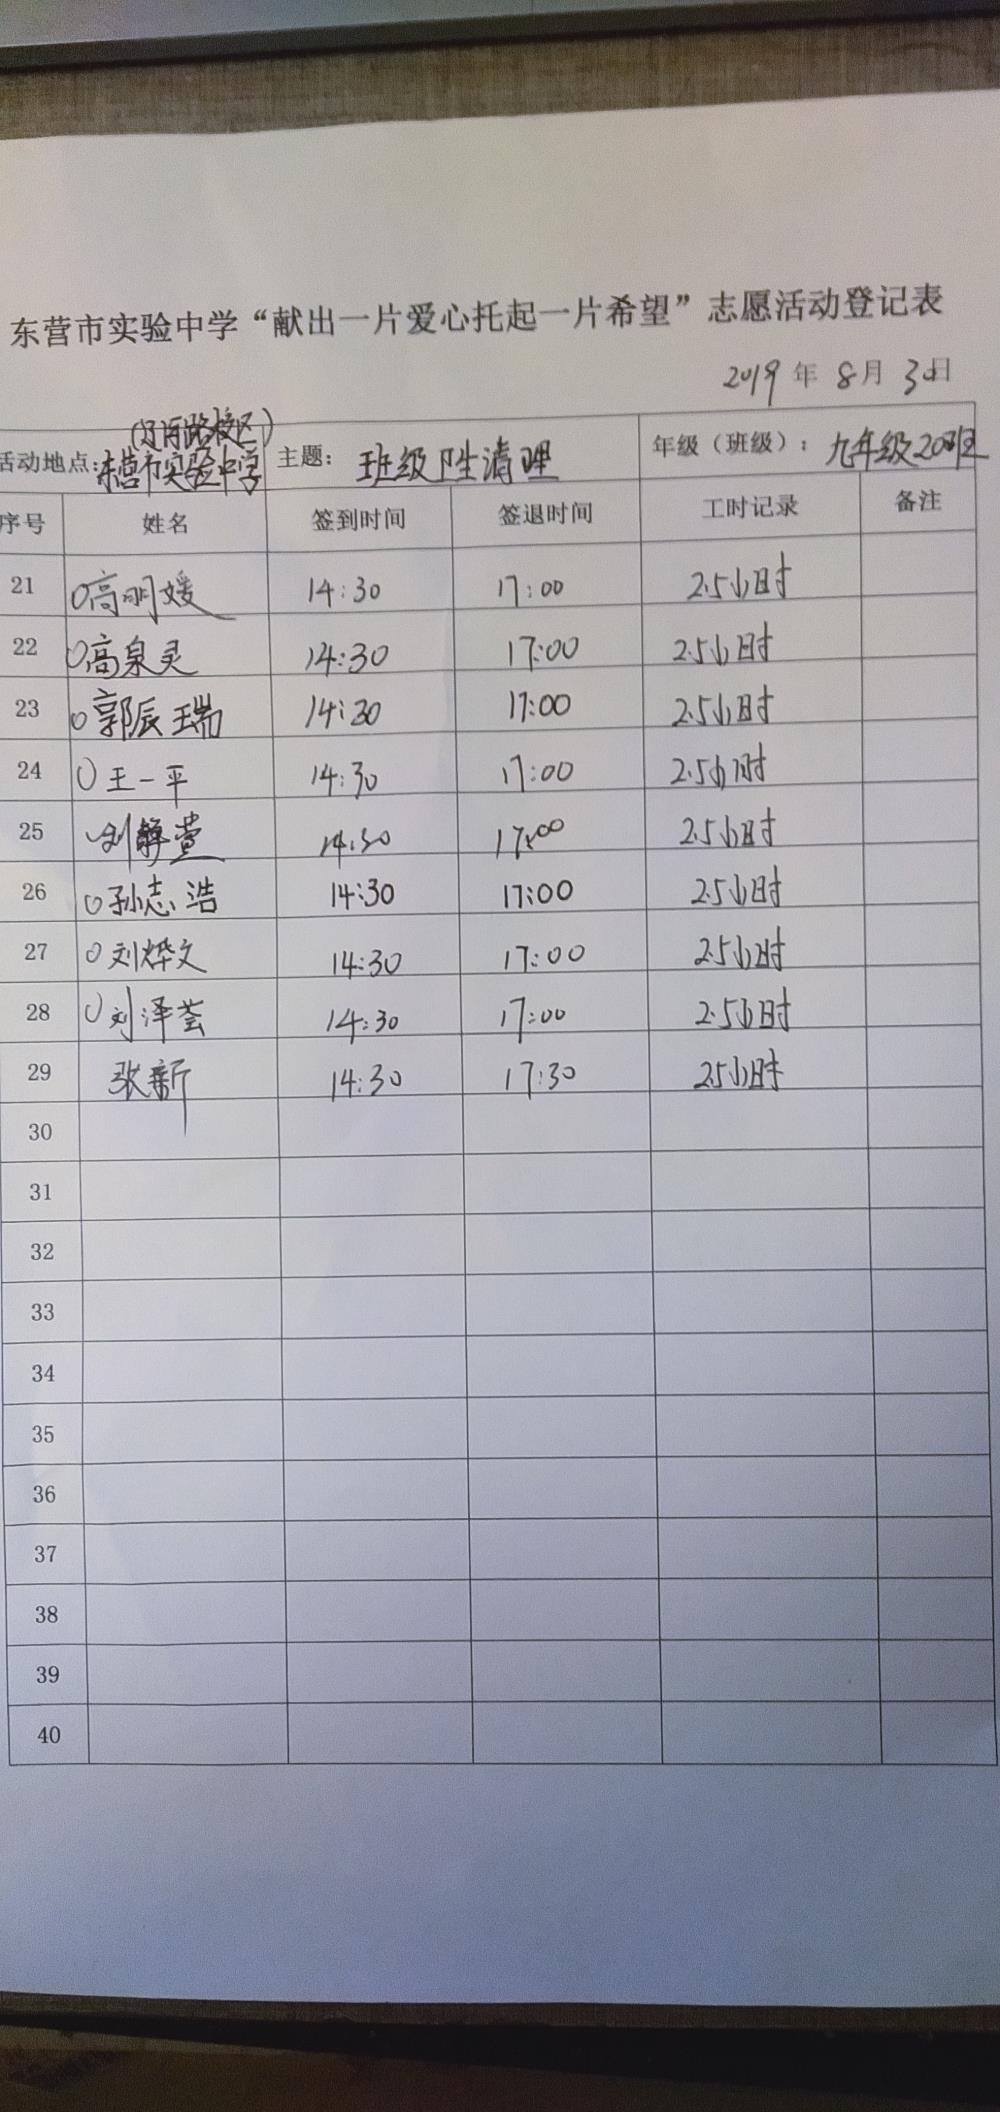 东营市实验中学“献出一片爱心托起一片希望”志愿活动登记表
2019 年 8 月 30 日
(辽河路校区)
活动地点:东营市实验中学 主题: 班级卫生清理 年级（班级）: 九年级20班
序号 姓名 签到时间 签退时间 工时记录 备注
21 高明媛 14:30 17:00 2.5小时
22 高泉灵 14:30 17:00 2.5小时
23 郭辰瑞 14:30 17:00 2.5小时
24 王一平 14:30 17:00 2.5小时
25 刘静萱 14:30 17:00 2.5小时
26 孙志浩 14:30 17:00 2.5小时
27 刘烨文 14:30 17:00 2.5小时
28 刘泽荟 14:30 17:00 2.5小时
29 张新 14:30 17:30 2.5小时
30
31
32
33
34
35
36
37
38
39
40